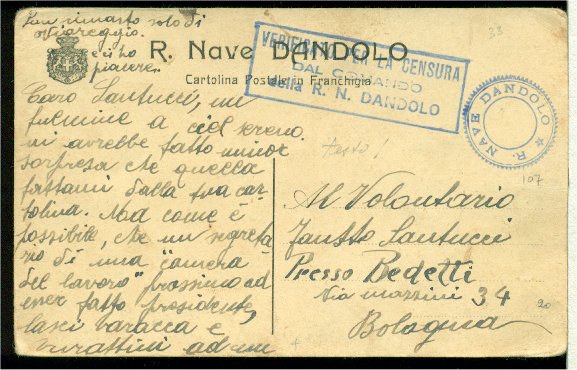 Son rimasto solo di
ciò ho
piacere.
33
R. Nave DANDOLO
Cartolina Postale in Franchigia
VERIFICATO PER LA CENSURA
DAL COMANDO
della R. N. DANDOLO
R. NAVE DANDOLO
107
Caro Santucci, un
fulmine a ciel sereno
mi avrebbe fatto minor
sorpresa che quella
fattami dalla tua car-
tolina. Ma come è
possibile, che un segreta
rio di una "camera
del lavoro" prossimo ad
esser fatto presidente,
lasci baracca e
burattini ad un
testo!
Al Volontario
Fausto Santucci
Presso Bedetti
Via Mazzini 34
20
Bologna